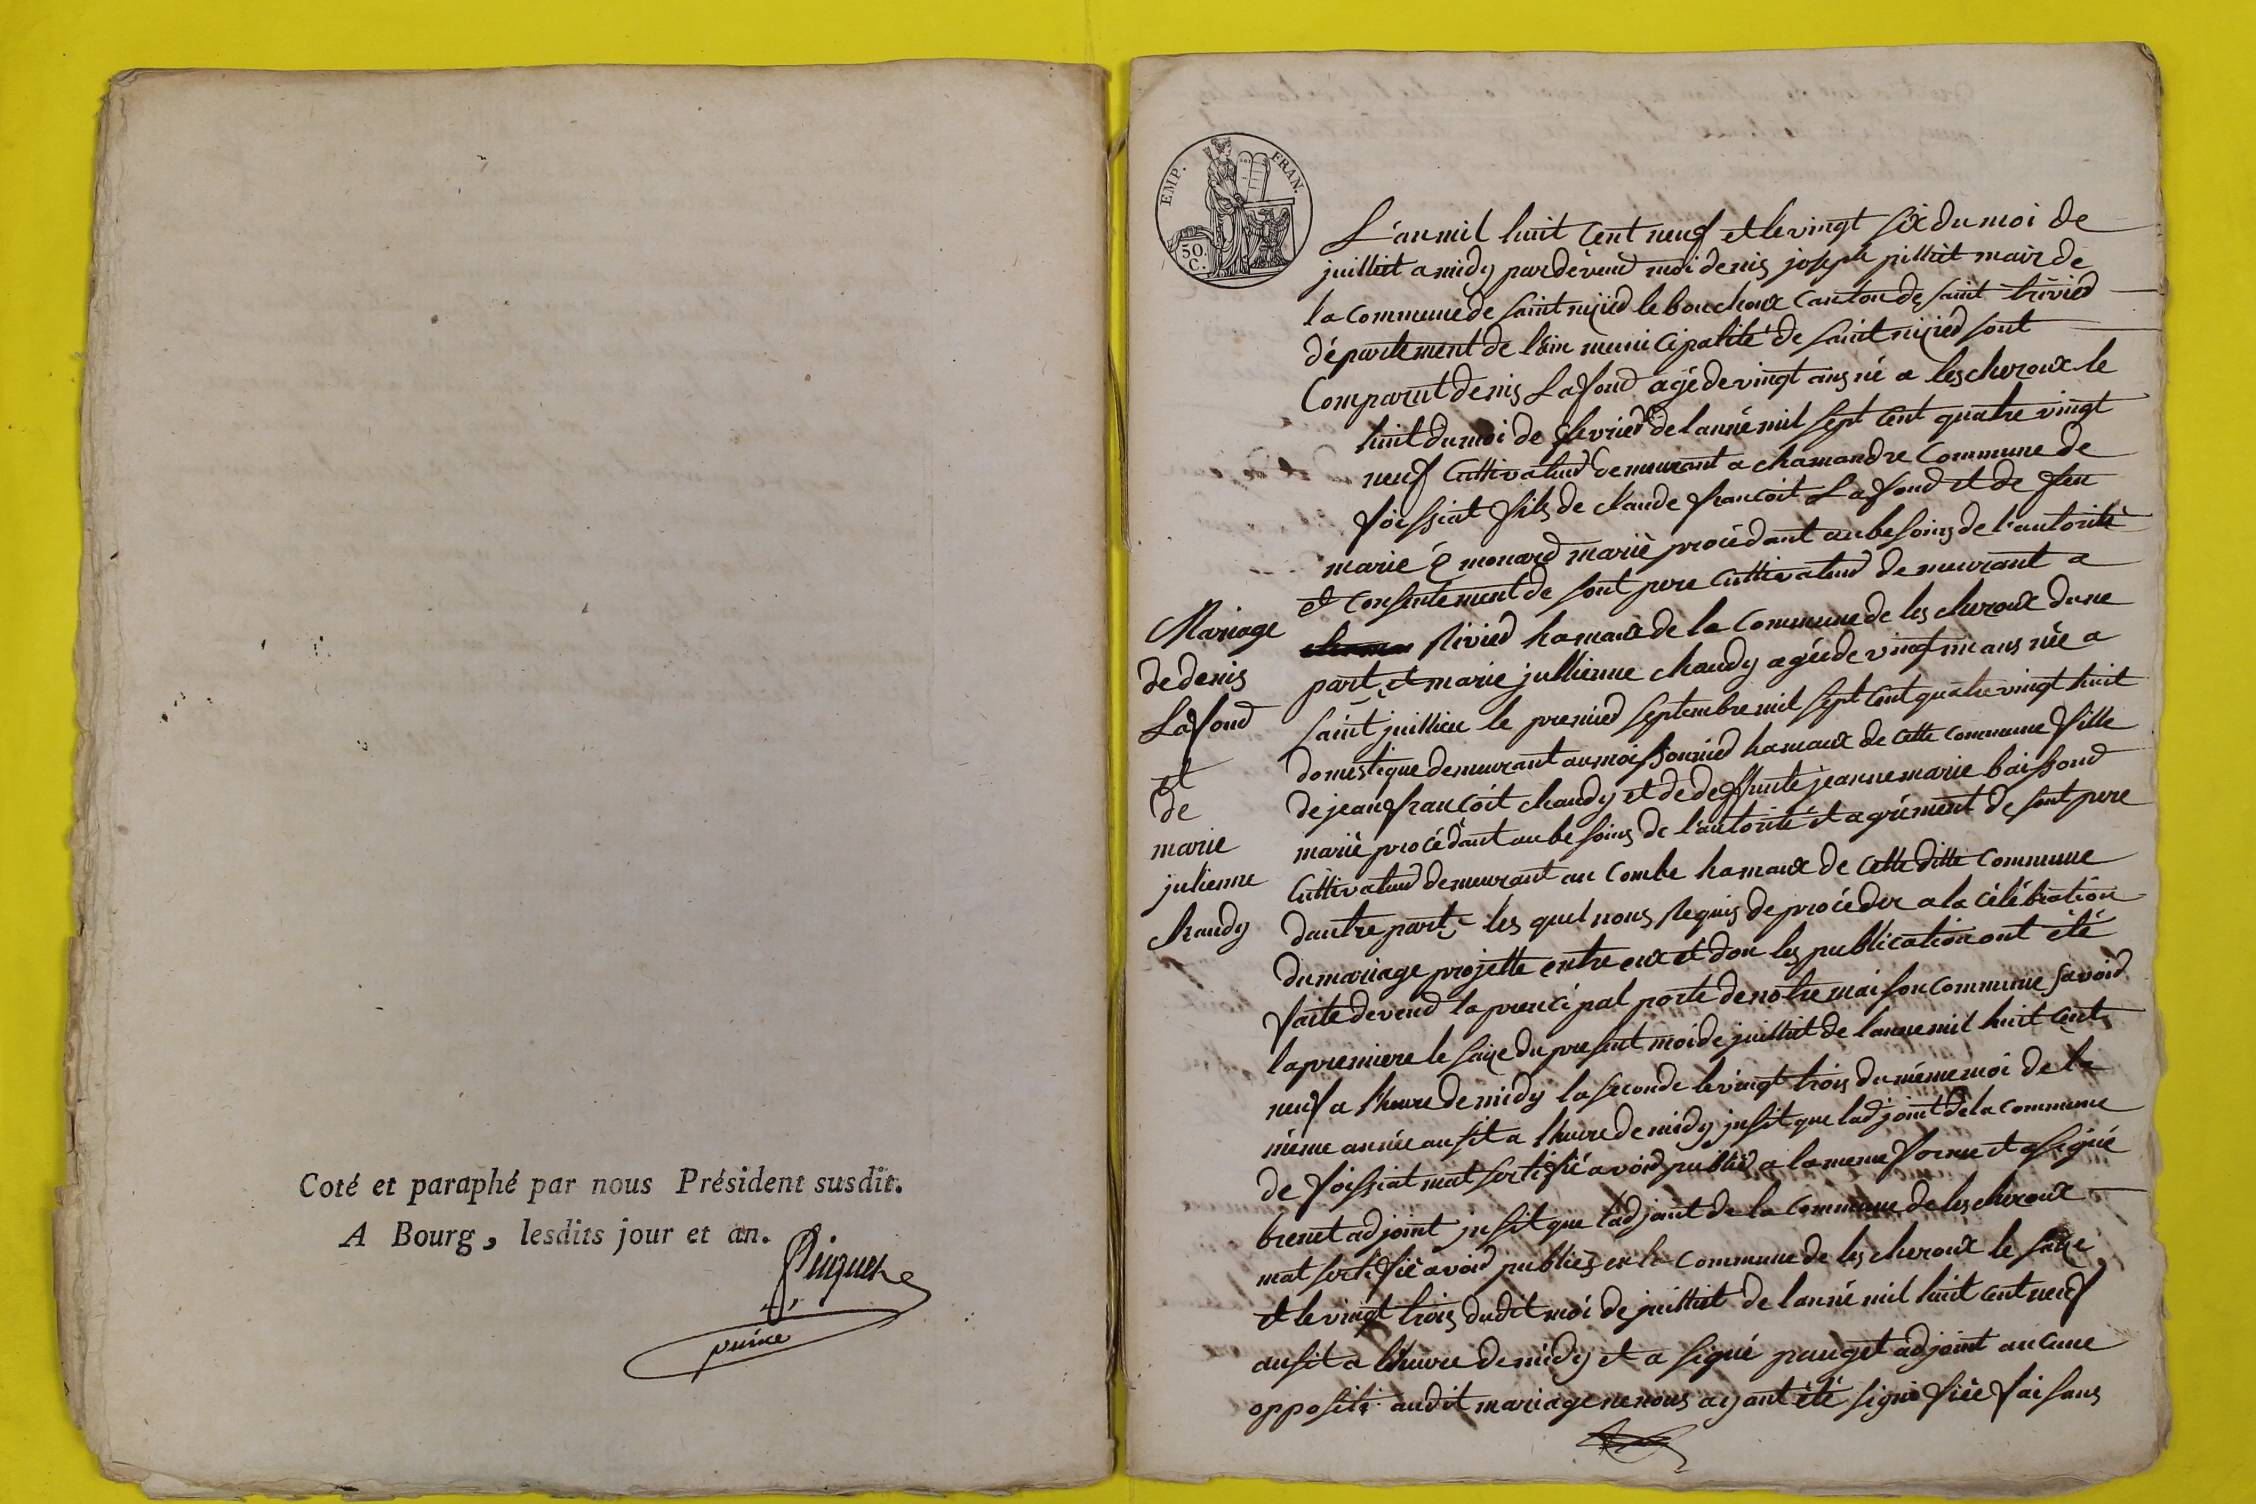 Coté et paraphé par nous Président susdit.
A Bourg, lesdits jour et an.
EMP. FRAN.
50.
C.
L'an mil huit cent neuf et le vingt six du moi de
juilliet a midy pardevend moi denis joseph pilliet mair de
la commune de saint nizied le bouchoux canton de saint trivied
département de l'ain municipalité de saint nizied sont
Comparut denis Lafond agé de vingt ans né a lescheroux le
huit du moi de fevried de lanné mil sept cent quatre vingt
neuf Cultivateud demeurant a chamandre Commune de
foissiat fils de claude francoit Lafond et de feu
marie monard marié procédant au besoins de l'autorité
et consentement de sont pere Cultivateud demeurant a
Rivied hamaux de la Commune de les cheroux dune
part, et marie jullienne chaudy agée de vingt ans née a
saint juillien le premied septembre mil sept cent quatre vingt huit
domestique demeurant au moissonnied hamaux de cette commune fille
de jean francoit chaudy et de deffunte jeanne marie baissond
marié procédant au besoins de l'autorité et agrément de sont pere
Cultivateud demeurant au Combe hamaux de cette ditte Commune
dautre part, les quel nous Requis de procéder a la célébration
du mariage projette entre eux et don les publication ont été
faite devend la prencipal porte de notre maison commune savoid
la premiere le saize du present moi de juilliet de lanne mil huit cent
neuf a l'heure de midy la seconde le vingt trois du même moi de la
même année ausit a lheure de midy insit que ladjoint de la commune
de foissiat mat sertifié avoid publied a la meme forme et a signé
brenet adjoint insit que ladjoint de la commune de lescheroux
mat sertifié avoid publiés en la Commune de les cheroux le saize
et le vingt trois dudit moi de juilliet de lanné mil huit cent neuf
ausit a lheure de midy et a signé pauget adjoint aucune
oppositi audit mariage ne nous ayant été signifiée faisans
Mariage
de denis
Lafond
et
de
marie
julienne
chaudy